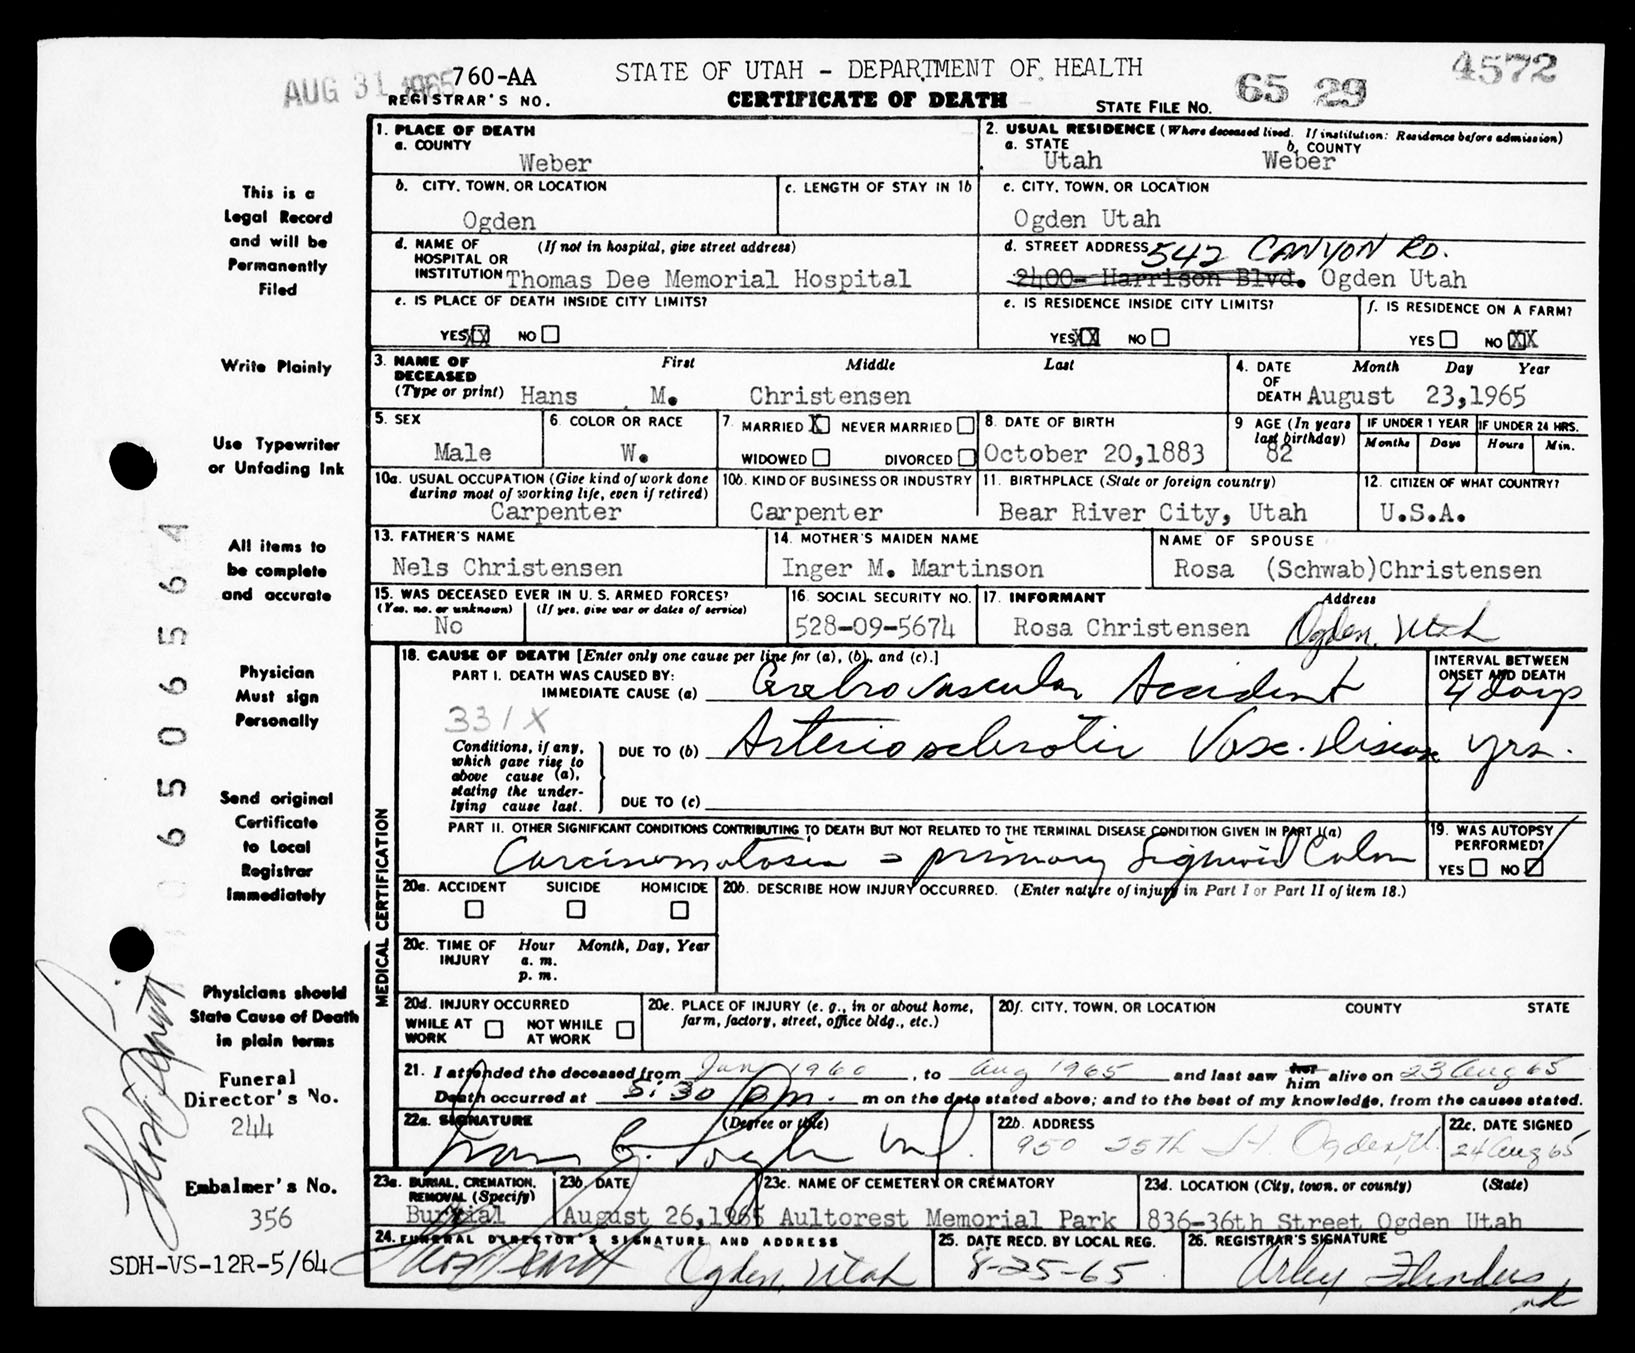 AUG 31 1965
760-AA
REGISTRAR'S NO.
STATE OF UTAH - DEPARTMENT OF HEALTH
CERTIFICATE OF DEATH
STATE FILE NO. 65 29
4572
This is a
Legal Record
and will be
Permanently
Filed
Write Plainly
Use Typewriter
or Unfading Ink
All items to
be complete
and accurate
Physician
Must sign
Personally
Send original
Certificate
to Local
Registrar
Immediately
Physicians should
State Cause of Death
in plain terms
Funeral
Director's No.
244
Embalmer's No.
356
SDH-VS-12R-5/64
65065564
1. PLACE OF DEATH
a. COUNTY
Weber
2. USUAL RESIDENCE (Where deceased lived. If institution: Residence before admission)
a. STATE b. COUNTY
Utah Weber
b. CITY, TOWN, OR LOCATION
Ogden
c. LENGTH OF STAY IN 1b
c. CITY, TOWN, OR LOCATION
Ogden Utah
d. NAME OF (If not in hospital, give street address)
HOSPITAL OR
INSTITUTION Thomas Dee Memorial Hospital
d. STREET ADDRESS 542 CANYON RD.
2400- Harrison Blvd. Ogden Utah
e. IS PLACE OF DEATH INSIDE CITY LIMITS?
YES XX NO
e. IS RESIDENCE INSIDE CITY LIMITS?
YES XX NO
f. IS RESIDENCE ON A FARM?
YES NO XX
3. NAME OF First Middle Last
DECEASED
(Type or print) Hans M. Christensen
4. DATE Month Day Year
OF
DEATH August 23,1965
5. SEX
Male
6. COLOR OR RACE
W.
7. MARRIED X NEVER MARRIED
WIDOWED DIVORCED
8. DATE OF BIRTH
October 20,1883
9 AGE (In years
last birthday)
82
IF UNDER 1 YEAR IF UNDER 24 HRS.
Months Days Hours Min.
10a. USUAL OCCUPATION (Give kind of work done
during most of working life, even if retired)
Carpenter
10b. KIND OF BUSINESS OR INDUSTRY
Carpenter
11. BIRTHPLACE (State or foreign country)
Bear River City, Utah
12. CITIZEN OF WHAT COUNTRY?
U.S.A.
13. FATHER'S NAME
Nels Christensen
14. MOTHER'S MAIDEN NAME
Inger M. Martinson
NAME OF SPOUSE
Rosa (Schwab)Christensen
15. WAS DECEASED EVER IN U. S. ARMED FORCES?
(Yes, no, or unknown) (If yes, give war or dates of service)
No
16. SOCIAL SECURITY NO.
528-09-5674
17. INFORMANT Address
Rosa Christensen Ogden, Utah
MEDICAL CERTIFICATION
18. CAUSE OF DEATH [Enter only one cause per line for (a), (b), and (c).]
PART I. DEATH WAS CAUSED BY:
IMMEDIATE CAUSE (a) Cerebrovascular Accident
INTERVAL BETWEEN
ONSET AND DEATH
4 days
331X
Conditions, if any,
which gave rise to
above cause (a),
stating the under-
lying cause last.
DUE TO (b) Arteriosclerotic Vasc. Disease yrs.
DUE TO (c)
PART II. OTHER SIGNIFICANT CONDITIONS CONTRIBUTING TO DEATH BUT NOT RELATED TO THE TERMINAL DISEASE CONDITION GIVEN IN PART I(a)
Carcinomatosis - primary Sigmoid Colon
19. WAS AUTOPSY
PERFORMED?
YES NO
20a. ACCIDENT SUICIDE HOMICIDE
20b. DESCRIBE HOW INJURY OCCURRED. (Enter nature of injury in Part I or Part II of item 18.)
20c. TIME OF Hour Month, Day, Year
INJURY a. m.
p. m.
20d. INJURY OCCURRED
WHILE AT NOT WHILE
WORK AT WORK
20e. PLACE OF INJURY (e. g., in or about home,
farm, factory, street, office bldg., etc.)
20f. CITY, TOWN, OR LOCATION COUNTY STATE
21. I attended the deceased from Jan 1960, to Aug 1965 and last saw her him alive on 23 Aug 65
Death occurred at 5:30 pm. m on the date stated above; and to the best of my knowledge, from the causes stated.
22a. SIGNATURE (Degree or title)
22b. ADDRESS
950 25th St. Ogden, U.
22c. DATE SIGNED
24 Aug 65
23a. BURIAL, CREMATION,
REMOVAL (Specify)
Burial
23b. DATE
August 26,1965
23c. NAME OF CEMETERY OR CREMATORY
Aultorest Memorial Park
23d. LOCATION (City, town, or county) (State)
836-36th Street Ogden Utah
24. FUNERAL DIRECTOR'S SIGNATURE AND ADDRESS
Ogden, Utah
25. DATE RECD. BY LOCAL REG.
8-25-65
26. REGISTRAR'S SIGNATURE
Arley Flinders